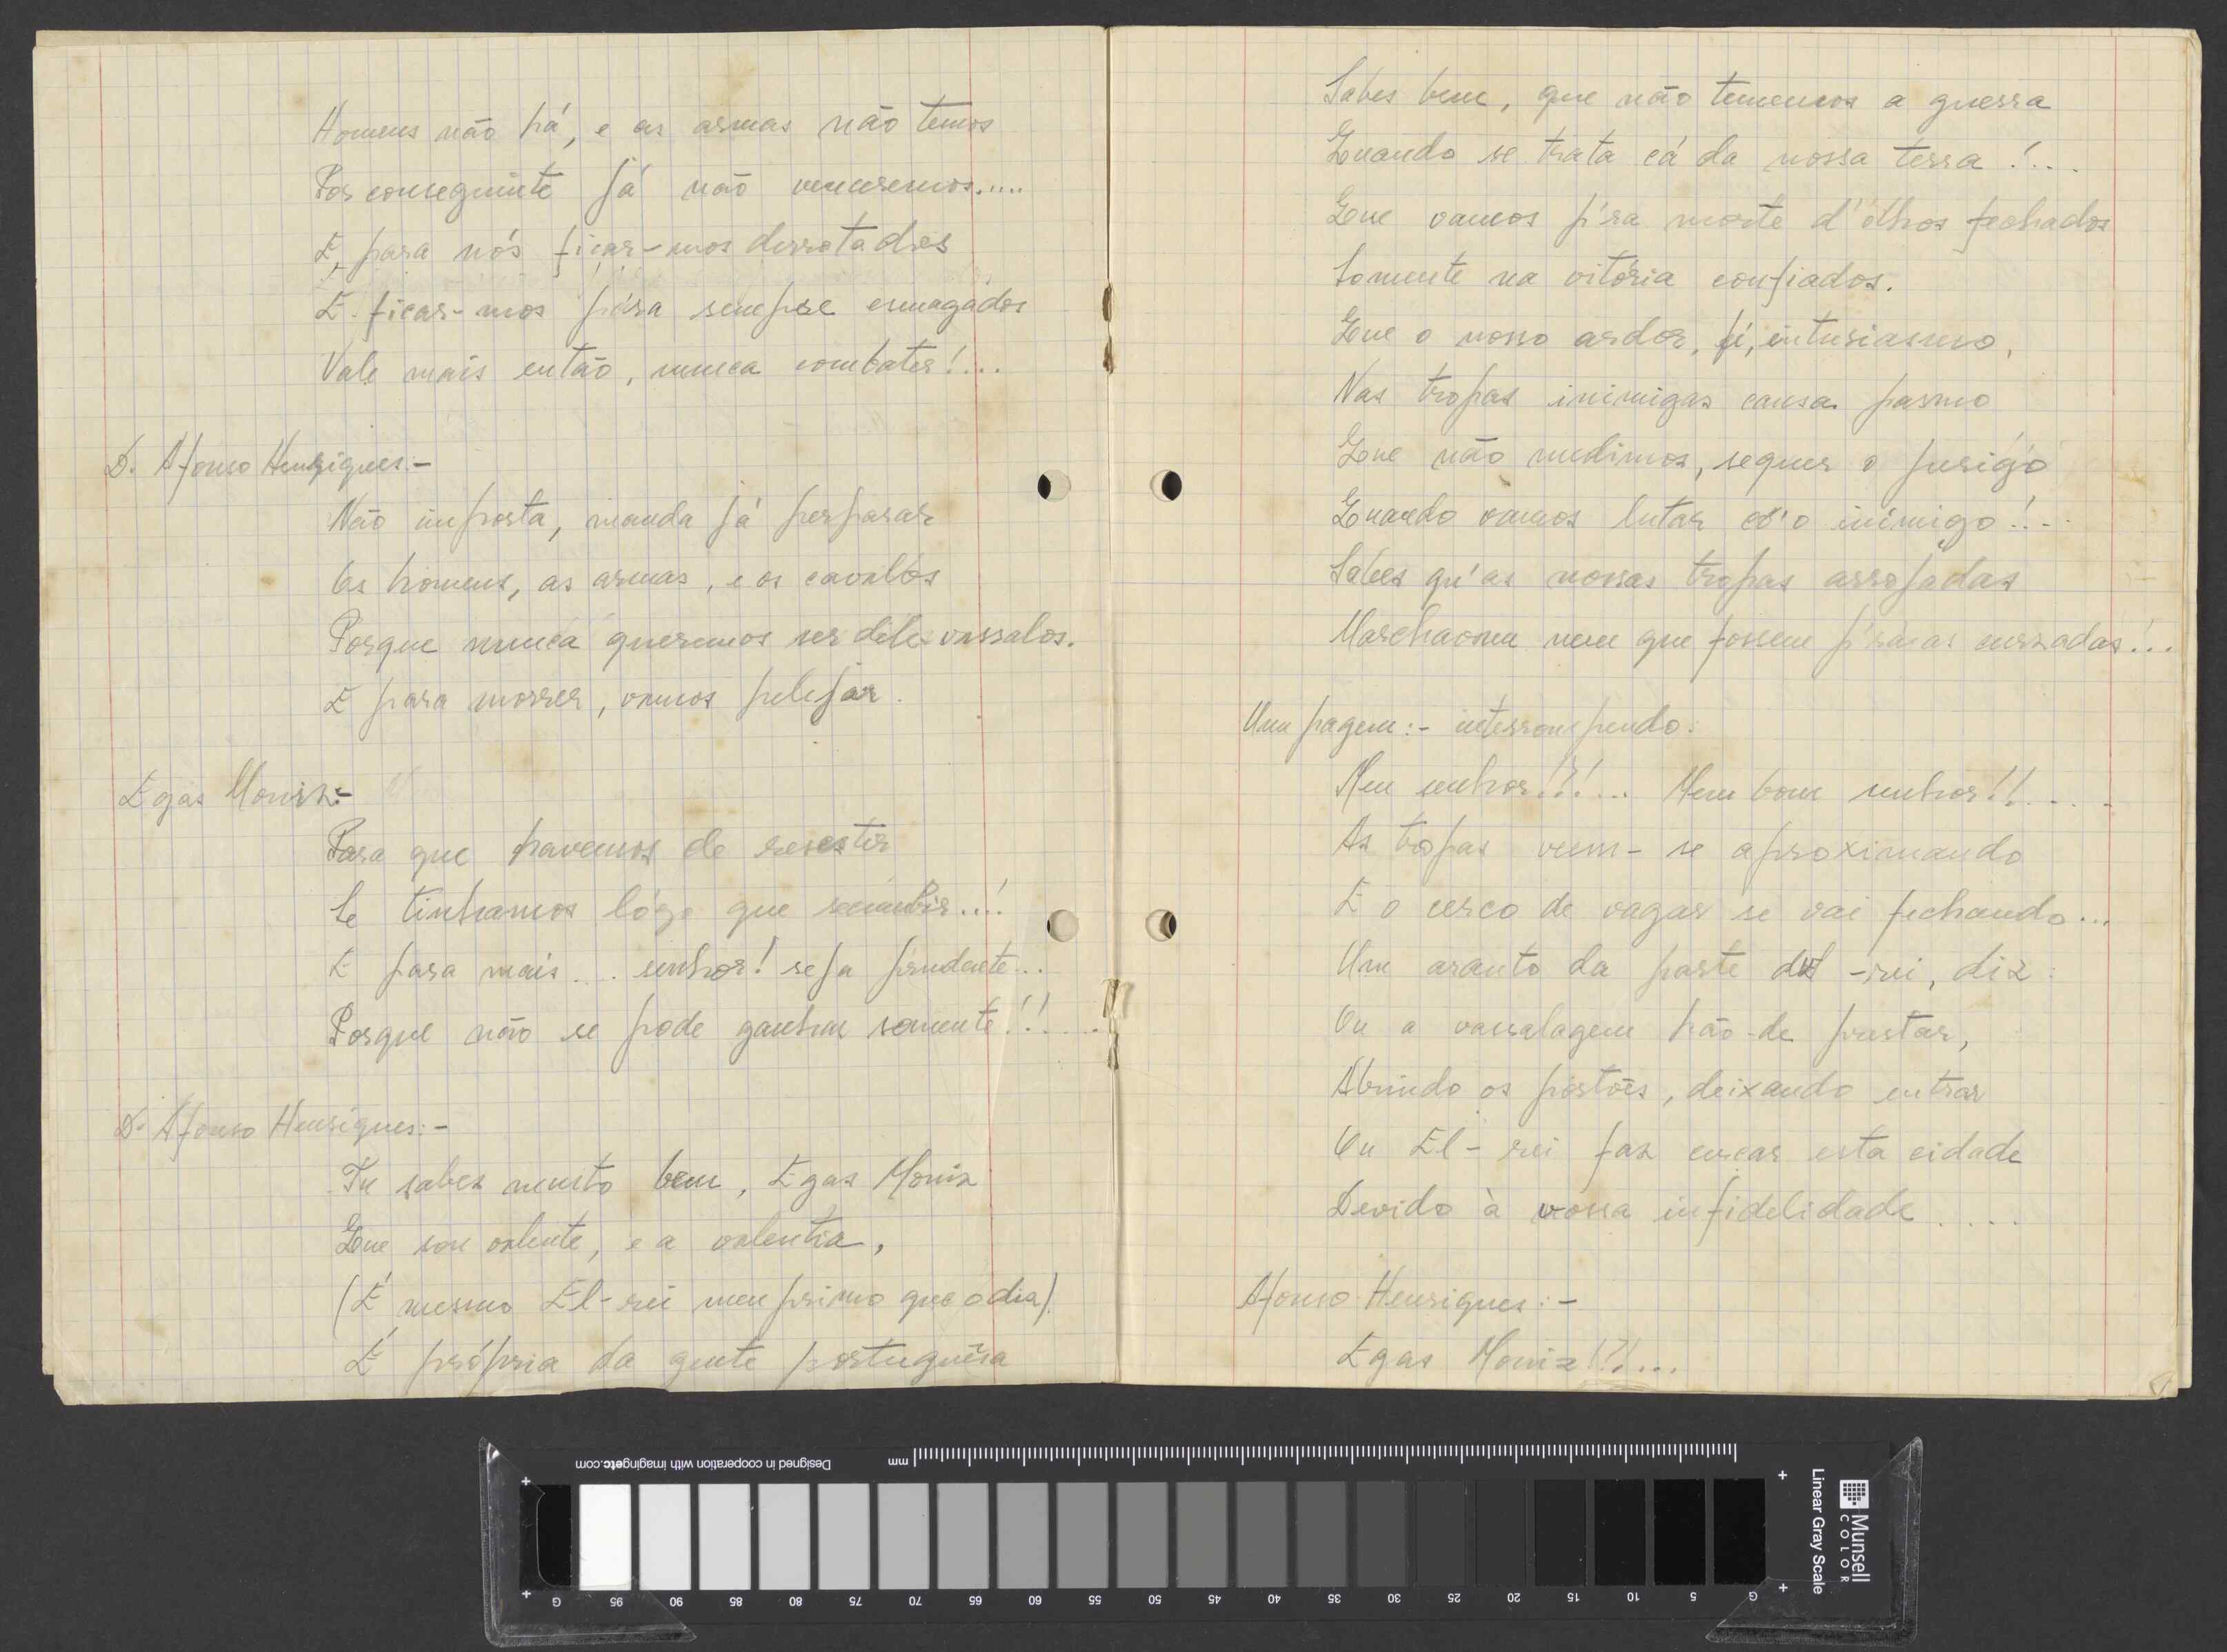 Homens não há, e as armas não temos
Por conseguinte já não venceremos.....
E, para nós ficar-mos derrotados
E ficar-mos p'ára sempre esmagados
Vale mais então, nunca combater!...
D. Afonso Henriques:-
Não importa, manda já perparar
Os homens, as armas, e os cavalos
Porque nunca queremos ser dêle vassalos.
E para morrer, vamos pelejar.
Egas Moniz:-
Para que havemos de resestir
Se tinhamos lógo que sucumbir...!
E para mais.... senhor! seja prudente...
Porque não se pode ganhar somente!!....
D. Afonso Henriques:-
Tu sabes muito bem, Egas Moniz
Que sou valente, e a valentia,
(É mesmo El-rei meu primo que o dia).
É própria da gente portuguêsa
Sabes bem, que não tememos a guerra
Quando se trata cá da nossa terra!...
Que vamos p'ra morte d'ólhos fechados
Somente na vitória confiados.
Que o nosso ardor, fé, entusiasmo,
Nas tropas inimigas causa pasmo
Que não medimos, sequer o perigo
Quando vamos lutar co'o inimigo!...
Sabes qu'as nossas tropas arrojadas
Marchavam nem que fossem p'ra as cruzadas!...
Um pagem:- interrompendo:
Meu senhor!?!... Meu bom senhor!!.....
As tropas veem-se aproximando
E o cerco de vagar se vai fechando...
Um arauto da parte del-rei, diz:
Ou a vassalagem hão-de prestar,
Abrindo os portões, deixando entrar
Ou El-rei faz cercar esta cidade
Devido à vossa infidelidade.....
Afonso Henriques:-
Egas Moniz!?!...
Designed in cooperation with imagingetc.com
mm
G 95 90 85 80 75 70 65 60 55 50 45 40 35 30 25 20 15 10 5 G
Linear Gray Scale
Munsell
COLOR